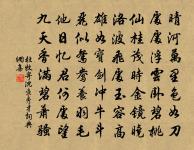 晴河萬里色如刀
處處浮雲臥碧桃
仙桂茂時金鏡曉
洛波飛處玉容高
雄如寶劍衝牛斗
麗似鴛鴦養羽毛
他日憶君何處望
九天香滿碧蕭騷
杜牧寄沈褒秀才詞典
網集